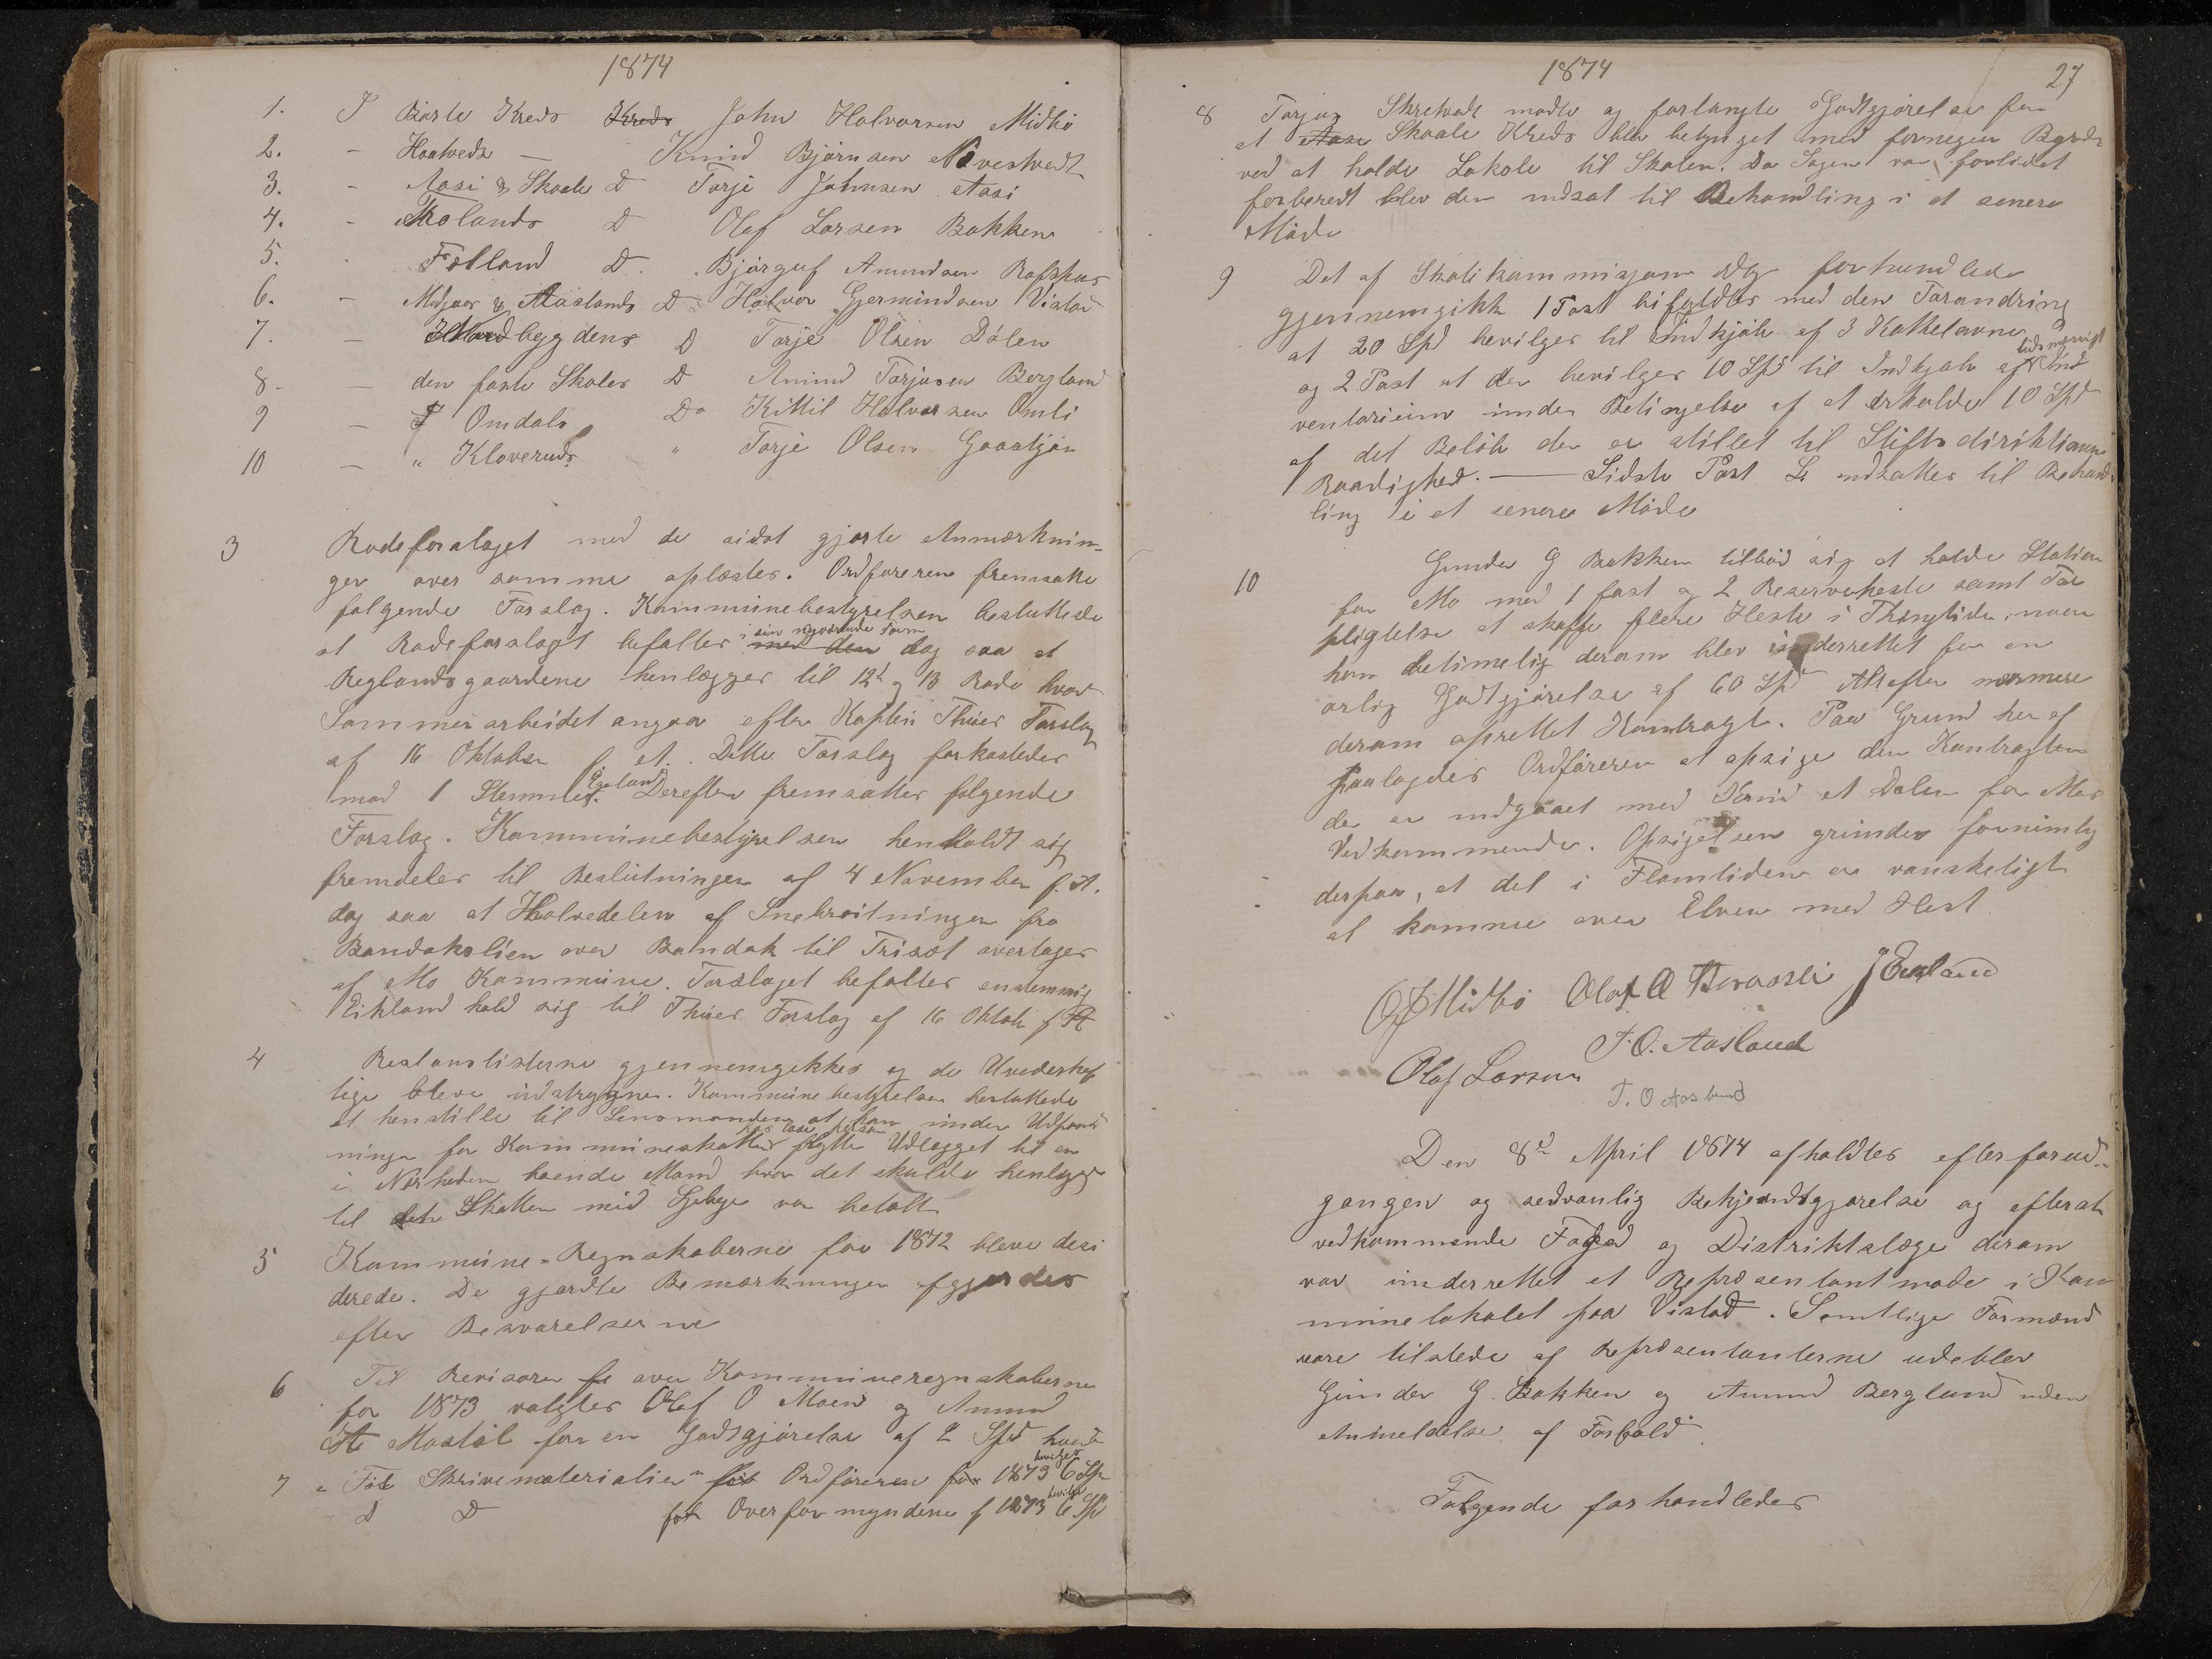 1874
1. I Børte Kreds Kreds John Halvorsen Midbø
2. - Haatveds — Knud Bjørnsen Nævestvedt
3. - Aasi & Skaale D Tarje Johnsen Aasi
4. - Molands D Olef Larsen Bakken
5. - Felland D. Bjørguf Amundsen Rafshus
6. - Midgaar & Aaslands D Halvor Gjermundsen Vistad
7. — bygdens D Tarje Olsen Dølen
8 - — den faste Skoles D Amund Tarjesen Bergland
9 — I Omdals Do Kittil Halvorsen Omli
10 — " Kloveruds " Tarje Olsen Gaastjøn
3 Rodeforslaget med de sidst gjorte Anmærknin-
ger over samme oplæstes. Ordføreren fremsatte
følgende Forslag. Kommunebestyrelsen besluttede
at Rodeforslaget befattes i sin nuværende Form med den dog saa at
Reglandsgaardene henlægges til 12t og 13 Rode hvad
Sommerarbeidet angaar efter Kaptein Thues Forslag
af 16 Oktober f. A. Dette Forslag forkastedes
mod 1 Stemme. Egeland Derefter fremsattes følgende
Forslag. Kommunebestyrelsen henholdt sig
fremdeles til Beslutningen af 4 November f. A.
dog saa at Halvedelen af Snebrøitningen fra
Bandakslien over Bandak til Trisæt overtages
af Mo Kommune. Forslaget befattes enstemmig
Eikland hold sig til Thues Forslag af 16 Oktob f A
4 Restanslisterne gjennemgikkes og de Uvederhef
tige bleve udstrygne. Kommunebestyrelsen besluttede
at henstille til Lensmanden at han under Udpant
ninger for Kommuneskatter flytte Udlægget til en
i Nærheden boende Mand hvor det skulde henligge
til det Skatten med Gebyr var betalt
5 Kommune-Regnskaberne for 1872 bleve desi
derede. De gjordte Bemærkninger afgjordes
efter Besvarelserne
6 Til Revisorer fo over Kommuneregnskaberne
for 1873 valgtes Olef O Moen og Amund
Mostøl for en Godtgjørelse af 2 Spd hver
7 " For Skrivematerialier for Ordføreren for 1873 bevilges 6 Sp
- D D for Overformynderne f 1873 bevilges 6 Spd
1874 27
8 Tarjus Skrelvedt mødte og forlangte Godtgjørelse for
at Aase Skaale Kreds blev betynget med formegen Byrde
ved at holde Lokale til Skolen. Da Sagen var forlidet
forberedt blev den udsat til Behandling i et senere
Møde
9 Det af Skolekommisjonen forhandlede
gjennemgikk 1 Post bifaldtes med den Forandring
at 20 Spd bevilges til Indkjøb af 3 Kakkelovne
og 2 Post at der bevilges 10 Spd til Indkjøb af In
ventarium under Betingelse af at erholde 10 Spd
af det Beløb der er stillet til Stiftsdirektionens
Raadighed. — Sidste Post udsattes til Behand-
ling i et senere Møde
10 Gunder G Bakken tilbød sig at holde Station
for Mo med 1 fast og 2 Reserveheste samt For
pligtelse at skaffe flere Heste i Thingtiden, naar
han betimelig derom blev underrettet for en
arlig Godtgjørelse af 60 Spd Alt efter nærmere
derom oprettet Kontragt. Paa Grund her af
paalagdes Ordføreren at opsige den Kontragten
der er indgaaet med Knud et Dalen for Mos
Vedkommende. Opsigelsen grundes fornimlig
derpaa, at det i Flomtiden er vanskeligt
at komme over Elven med Hest
OJMidbø Olaf A Beraasli JEikland
T.O. Aasland
Olaf Larsen
T. O Aasland
Den 8de April 1874 afholdtes efter forud-
gangen og sedvanlig Bekjendtgjørelse og efterat
vedkommende Foged og Distriktslæge derom
var underrettet et Repræsentantmøde i Kom
munelokalet paa Vistad. Samtlige Formænd
vare tilstede af Repræsentanterne udeblev
Gunder G. Bakken og Amund Bergland uden
Anmeldelse af Forfald.
Følgende forhandledes